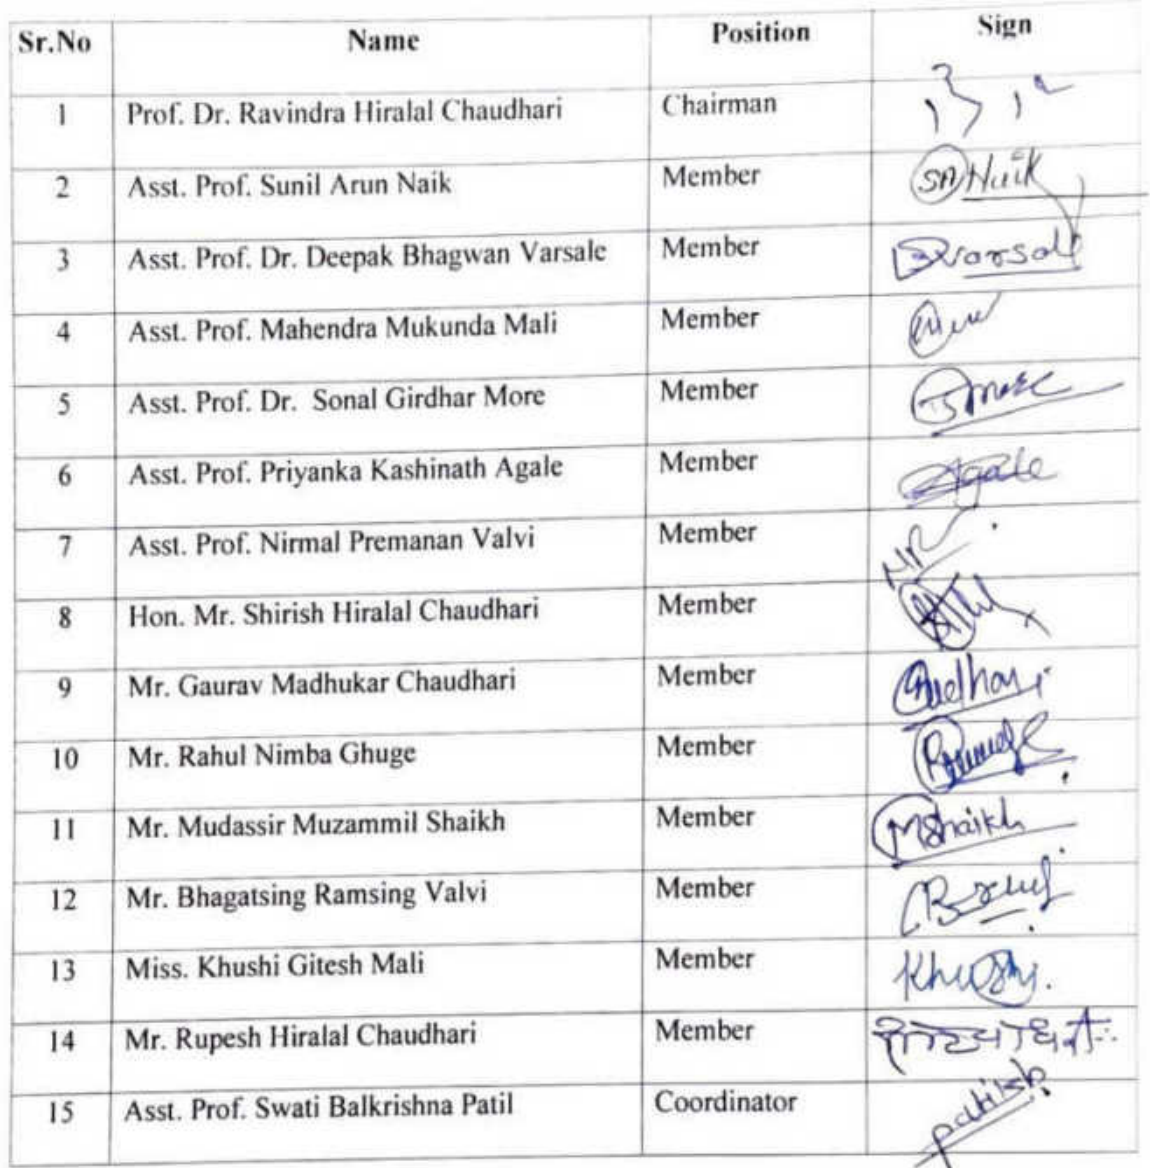 Sr.No Name Position Sign
1 Prof. Dr. Ravindra Hiralal Chaudhari Chairman
2 Asst. Prof. Sunil Arun Naik Member SANaik
3 Asst. Prof. Dr. Deepak Bhagwan Varsale Member
4 Asst. Prof. Mahendra Mukunda Mali Member
5 Asst. Prof. Dr. Sonal Girdhar More Member
6 Asst. Prof. Priyanka Kashinath Agale Member Agale
7 Asst. Prof. Nirmal Premanan Valvi Member
8 Hon. Mr. Shirish Hiralal Chaudhari Member
9 Mr. Gaurav Madhukar Chaudhari Member
10 Mr. Rahul Nimba Ghuge Member
11 Mr. Mudassir Muzammil Shaikh Member MShaikh
12 Mr. Bhagatsing Ramsing Valvi Member
13 Miss. Khushi Gitesh Mali Member
14 Mr. Rupesh Hiralal Chaudhari Member
15 Asst. Prof. Swati Balkrishna Patil Coordinator